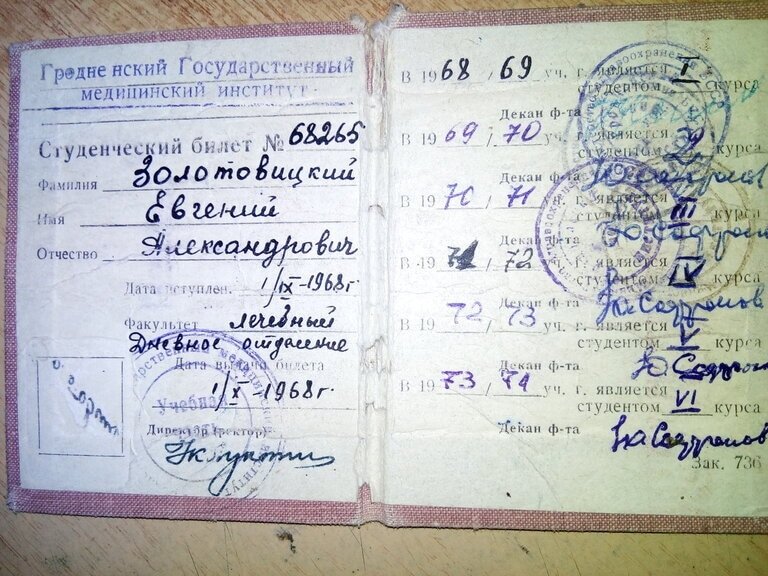 Гродненский Государственный
медицинский институт
Студенческий билет № 68265
Фамилия Золотовицкий
Имя Евгений
Отчество Александрович
Дата вступлен. 1/IX-1968г
Факультет лечебный
Дневное отделение
Дата выдачи билета
1/X-1968г
Учебная
Директор (ректор)
В 1968/69 уч. г. является
студентом I курса
Декан ф-та
В 1969/70 уч. г. является
студентом курса
Декан ф-та
В 1970/71 уч. г. является
студентом III курса
Декан ф-та
В 1971/72 уч. г. является
студентом IV курса
Декан ф-та
В 1972/73 уч. г. является
студентом V курса
Декан ф-та
В 1973/74 уч. г. является
студентом VI курса
Декан ф-та
Зак. 736